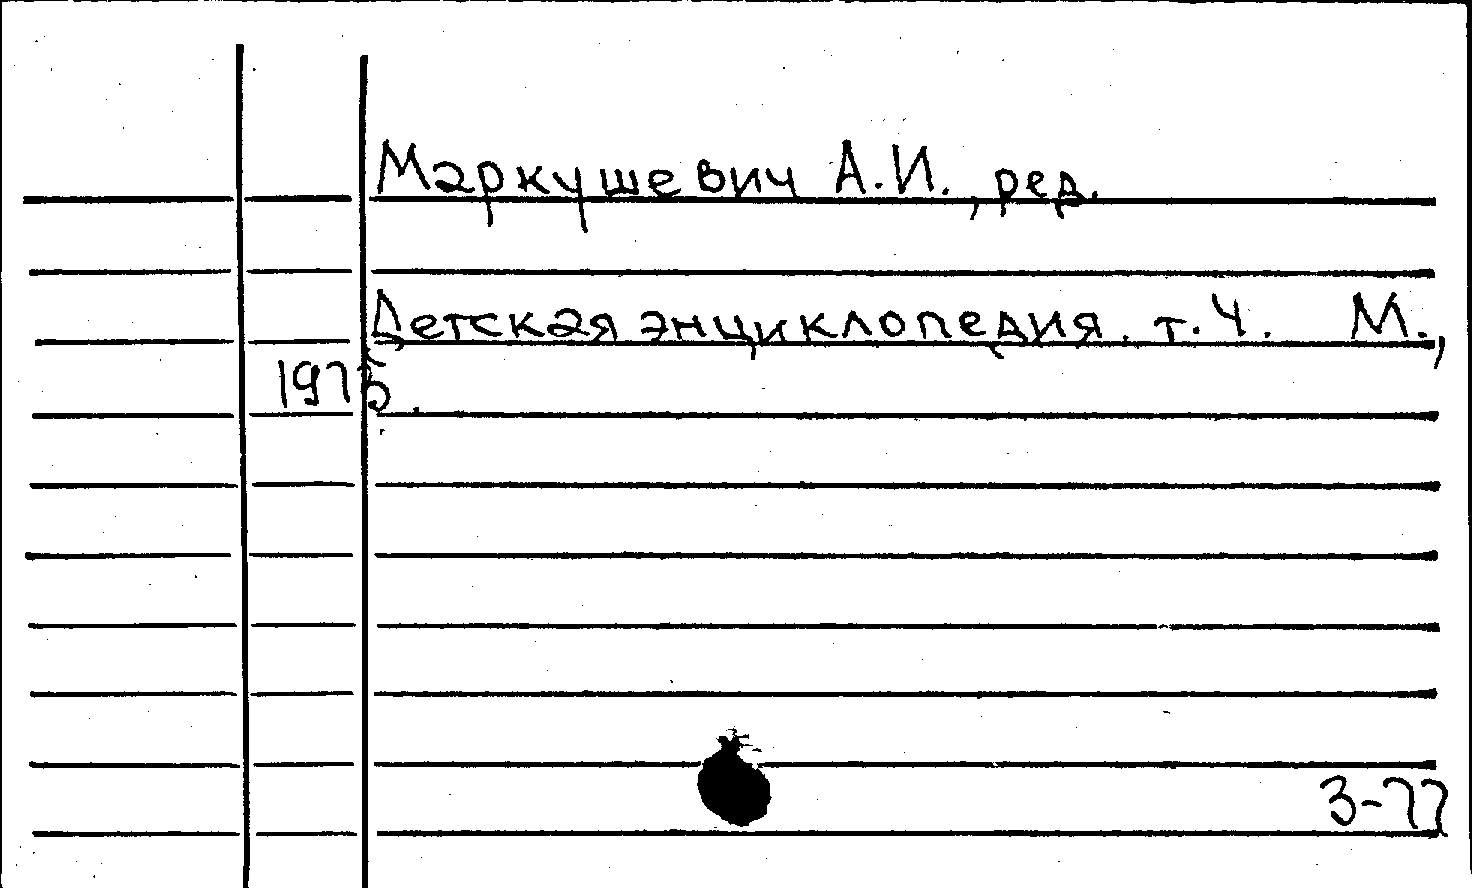 Маркушевич А.И., ред.
Детская энциклопедия. т. 4. М.,
1975.
3-77